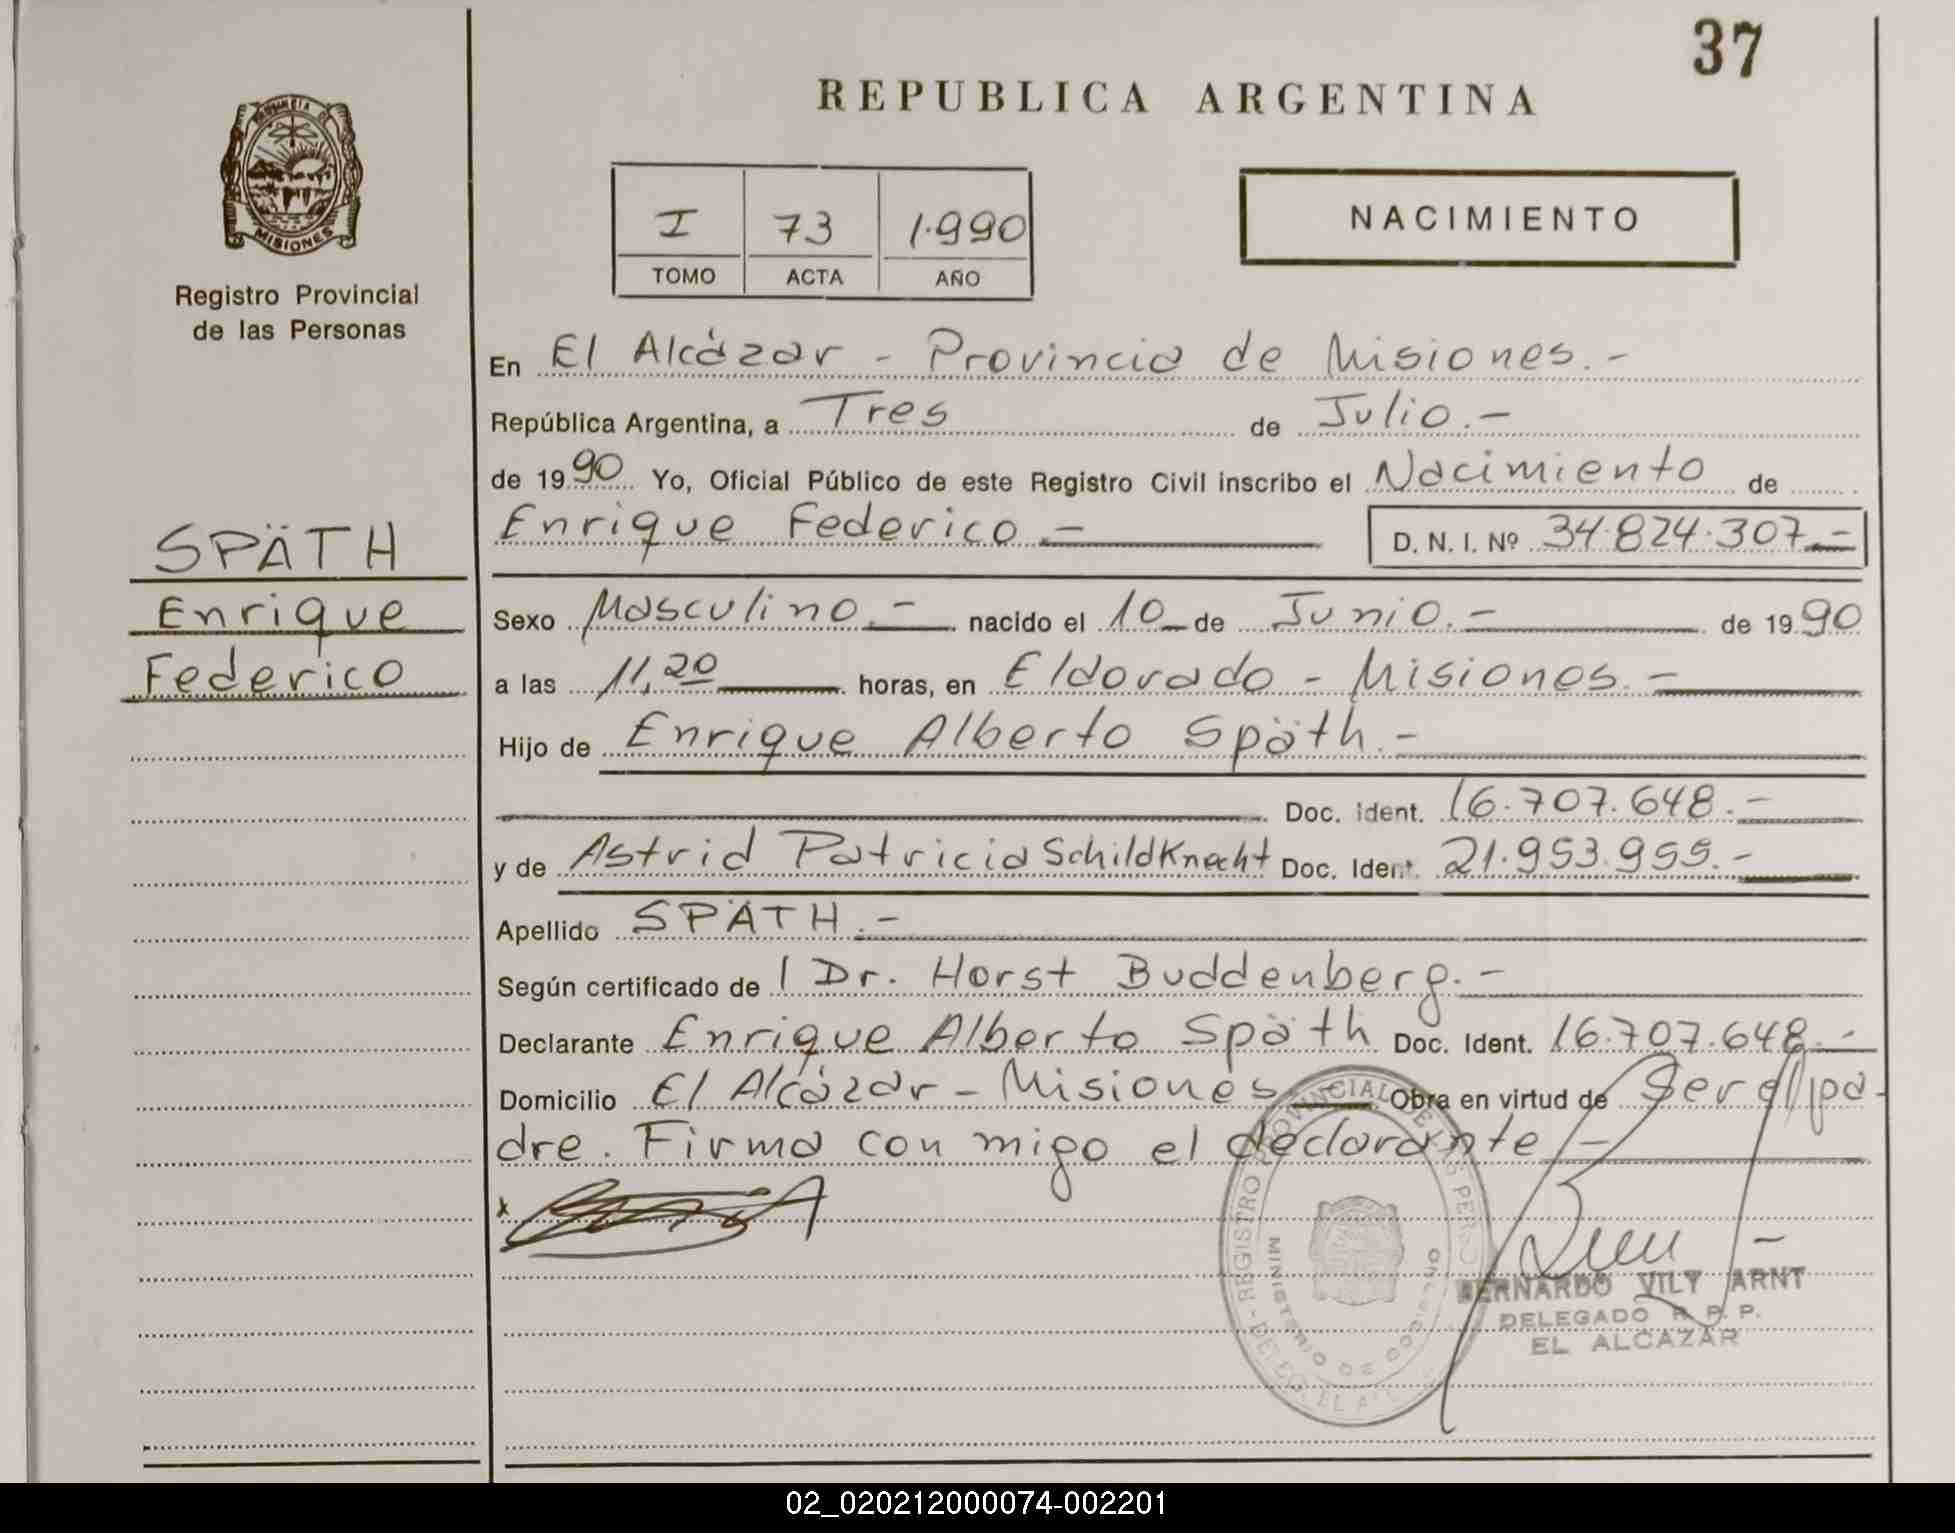 37
REPUBLICA ARGENTINA
PROVINCIA DE
MISIONES
Registro Provincial
de las Personas
I 73 1.990
TOMO ACTA AÑO
NACIMIENTO
En El Alcázar - Provincia de Misiones.-
República Argentina, a Tres de Julio.-
de 1990 Yo, Oficial Público de este Registro Civil inscribo el Nacimiento de
Enrique Federico.- D. N. I. Nº 34.824.307.-
SPÄTH
Enrique
Federico
Sexo Masculino.- nacido el 10 de Junio.- de 1990
a las 11,20 horas, en Eldorado - Misiones.-
Hijo de Enrique Alberto Späth.-
Doc. Ident. 16.707.648.-
y de Astrid Patricia SchildKnecht Doc. Ident. 21.953.955.-
Apellido SPÄTH.-
Según certificado de l Dr. Horst Buddenberg.-
Declarante Enrique Alberto Späth Doc. Ident. 16.707.648.-
Domicilio El Alcázar - Misiones Obra en virtud de Ser el pa-
dre. Firma con migo el declarante -
x
REGISTRO PROVINCIAL DE LAS PERSO
MINISTERIO DE GOBIERNO
BERNARDO VILY ARNT
DELEGADO R. P. P.
EL ALCAZAR
02_020212000074-002201